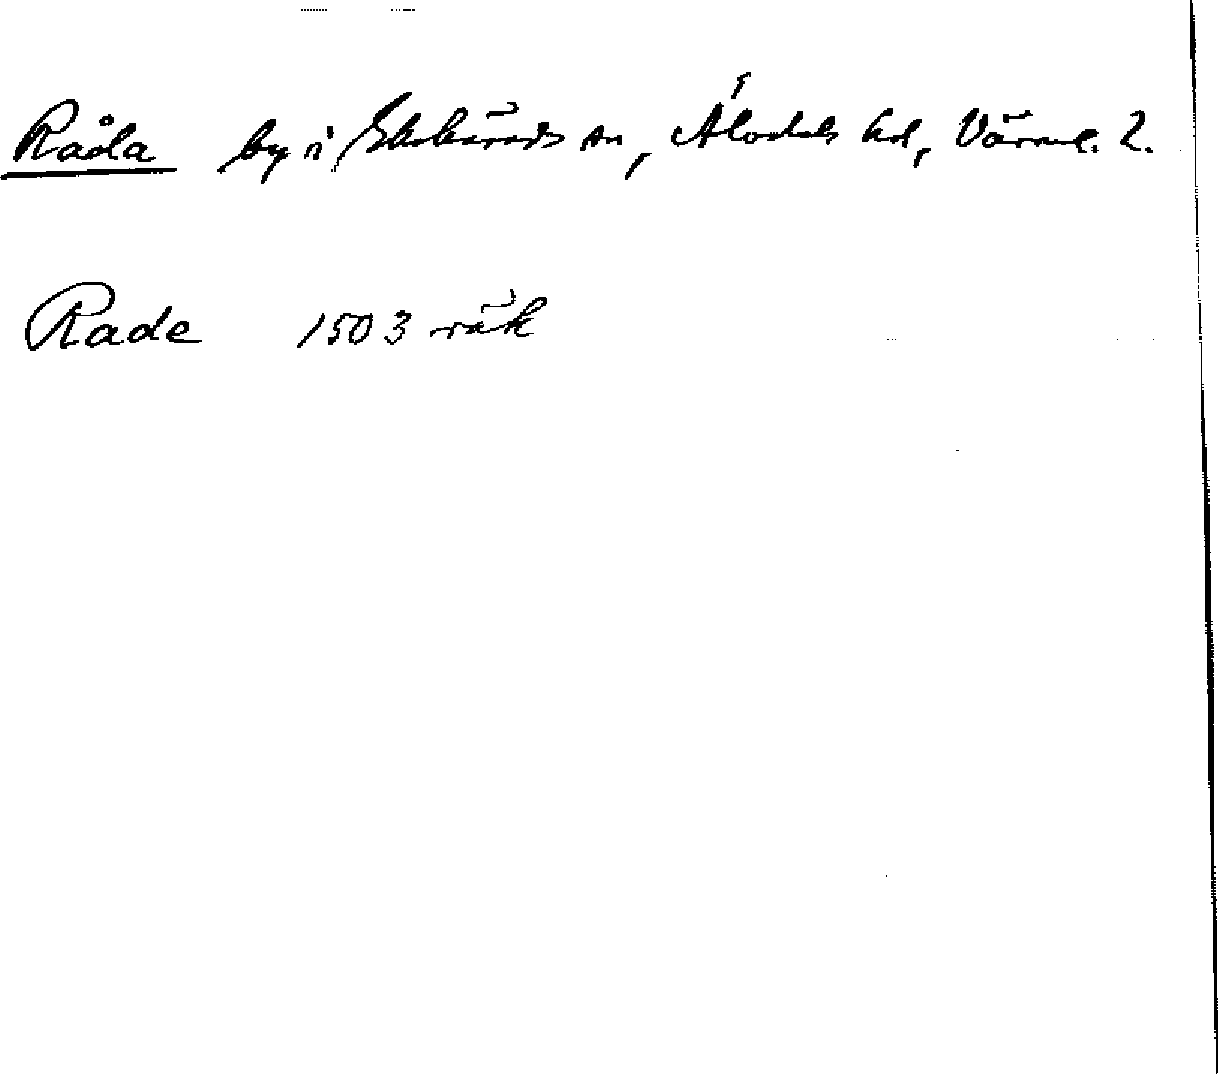 Råda by i Ekshärads sn, Älvdals hd, Värml. l.
Rade 1503 räk